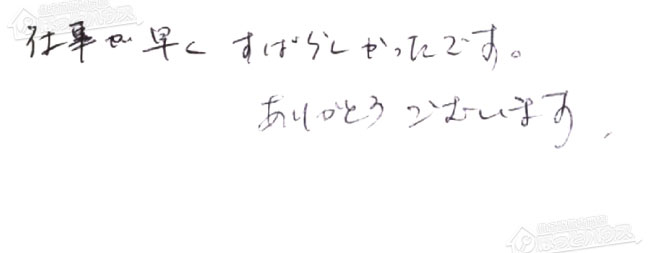 仕事が早く すばらしかったです。
ありがとうございます